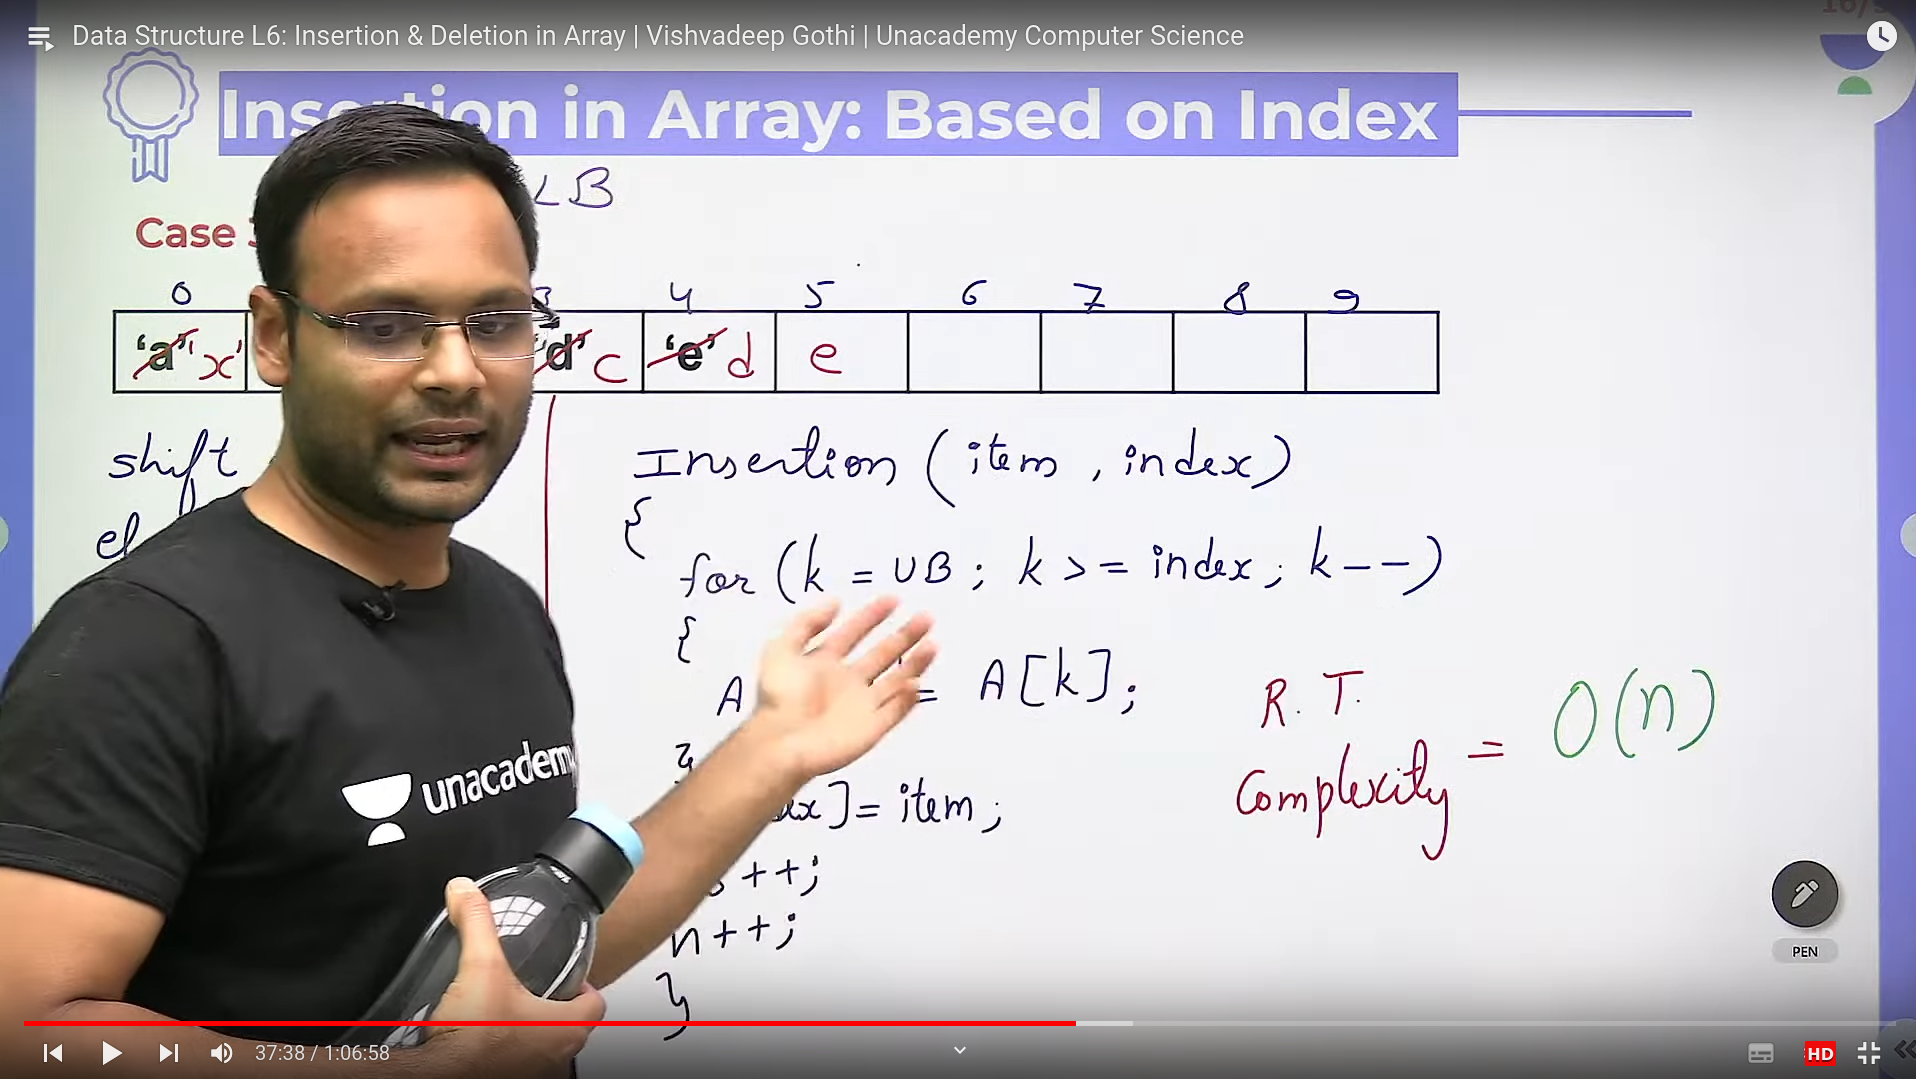 Data Structure L6: Insertion & Deletion in Array | Vishvadeep Gothi | Unacademy Computer Science
Insertion in Array: Based on Index
LB
Case
0 3 4 5 6 7 8 9
'a' 'x' 'd' c 'e' d e
shift
Insertion (item, index)
{
for (k = UB; k >= index; k--)
{
A = A[k];
}
]= item;
++;
n++;
}
R.T.
Complexity = O(n)
unacademy
PEN
37:38 / 1:06:58
HD